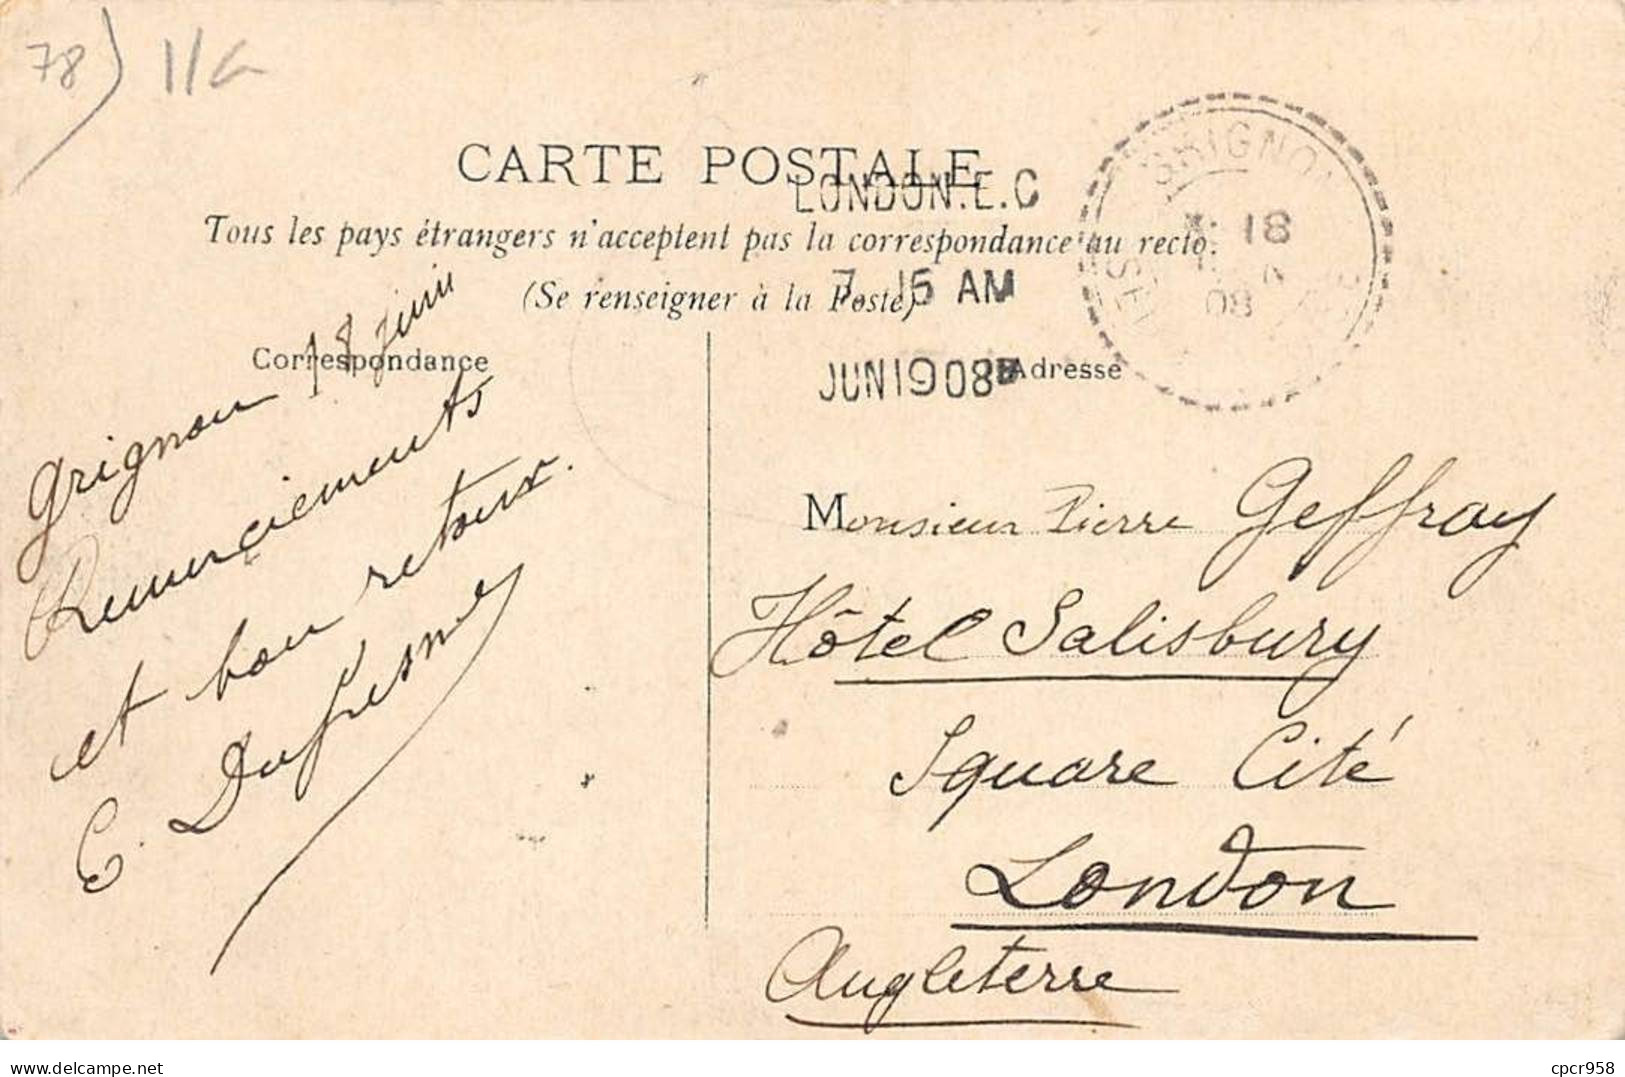 78) 11/G
CARTE POSTALE
LONDON.E.C
Tous les pays étrangers n'acceptent pas la correspondance au recto.
(Se renseigner à la Poste)
7 15 AM
JUN 19 08
GRIGNON
18
08
Correspondance
Adresse
Grignon 18 juin
Remerciements
et bon retour.
E. Dufresne
Monsieur Pierre Geffray
Hôtel Salisbury
Square Cité
London
Angleterre
delcampe.net
cpcr958